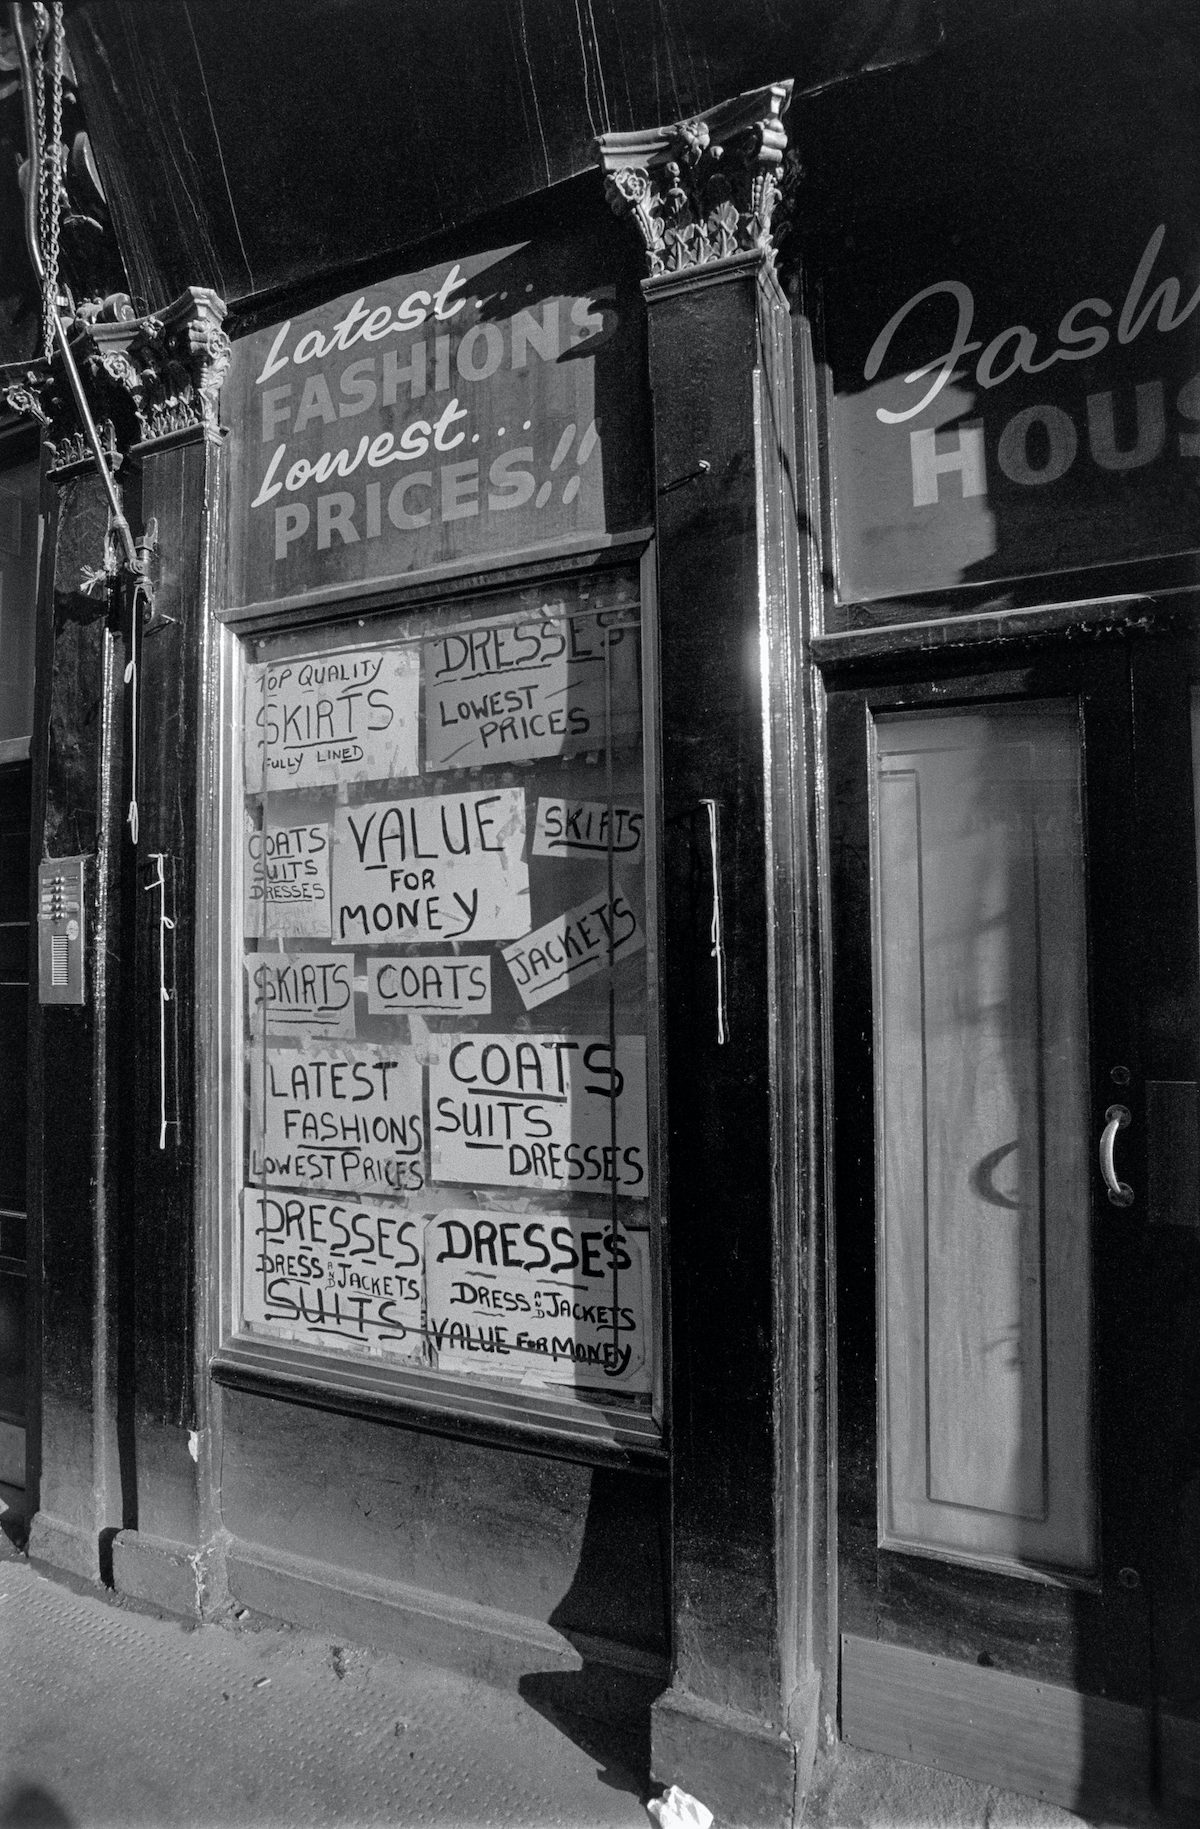 Latest...
FASHIONS
Lowest...
PRICES!!
Fash
HOUS
TOP QUALITY
SKIRTS
FULLY LINED
DRESSES
LOWEST
PRICES
COATS
SUITS
DRESSES
PRICES
VALUE
FOR
MONEY
SKIRTS
JACKETS
SKIRTS
COATS
LATEST
FASHIONS
LOWEST PRICES
COATS
SUITS
DRESSES
DRESSES
DRESS AND JACKETS
SUITS
DRESSES
DRESS AND JACKETS
VALUE FOR MONEY